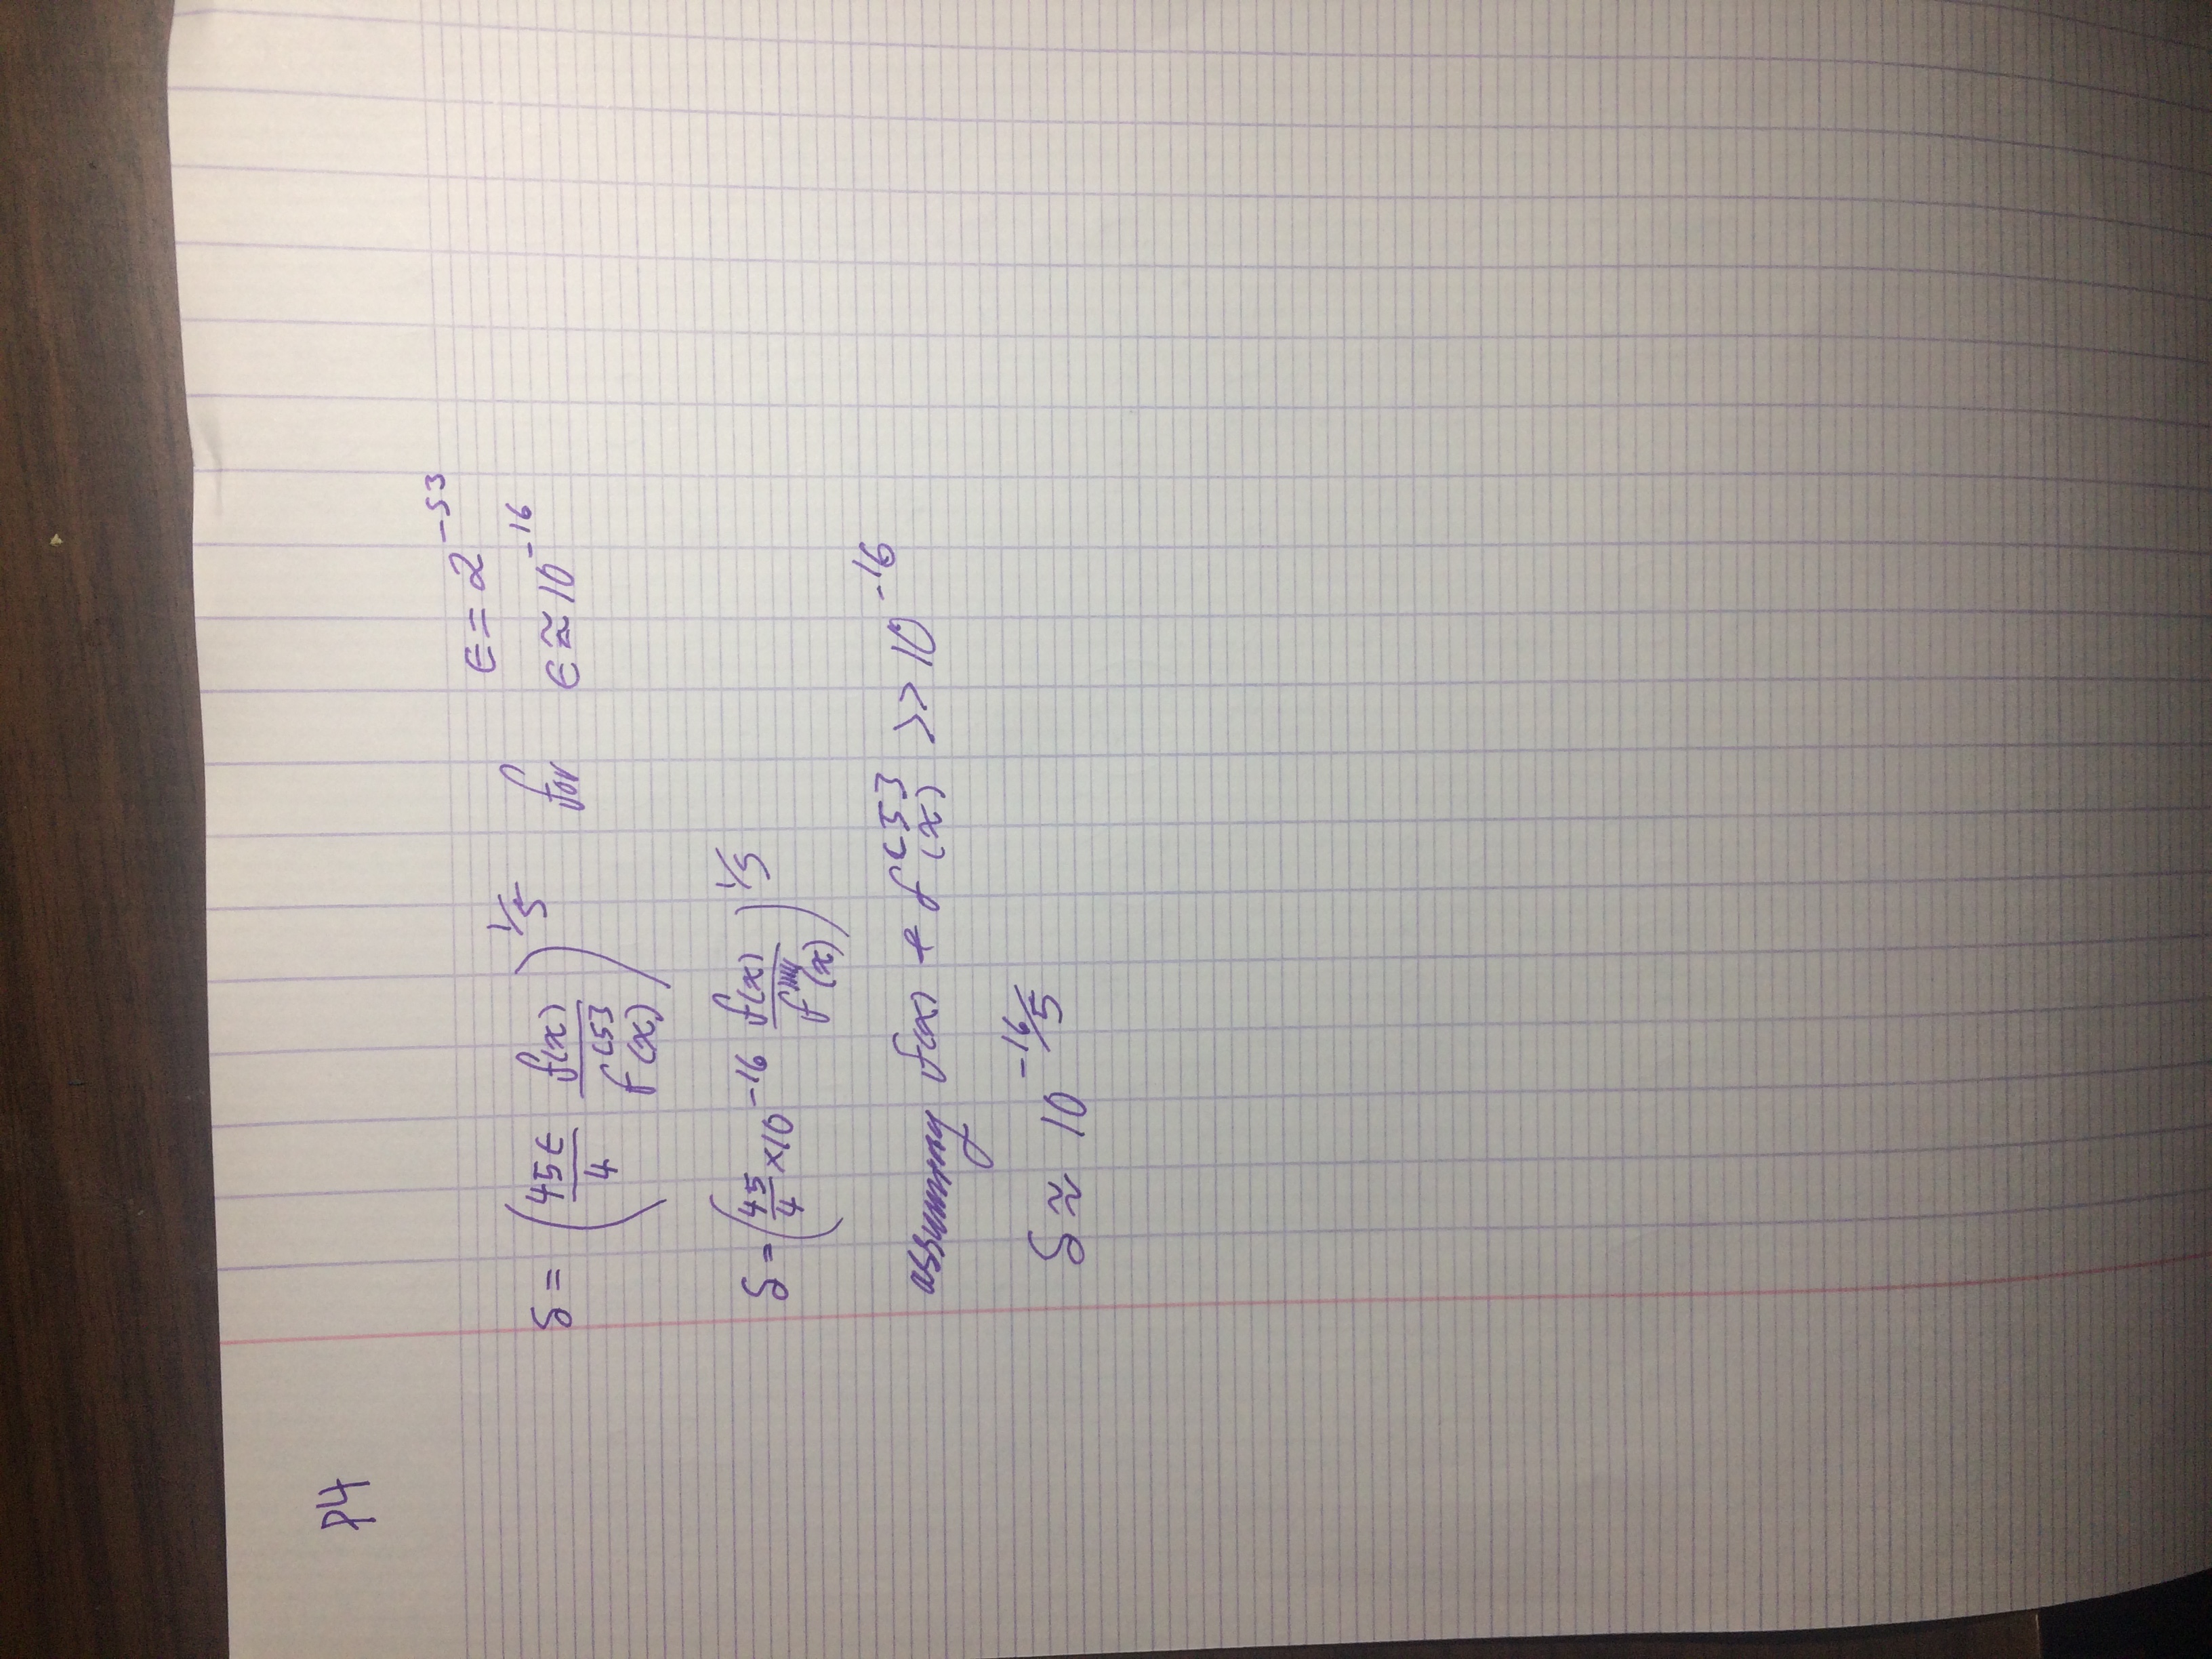 P4
ϵ = 2^{-53}
δ = ( 45ϵ/4 f(x)/f^{(5)}(x) )^{1/5} for ϵ ≈ 10^{-16}
δ = ( 45/4 × 10^{-16} f(x)/f'''''(x) )^{1/5}
assuming f(x) + f^{(5)}(x) >> 10^{-16}
δ ≈ 10^{-16/5}